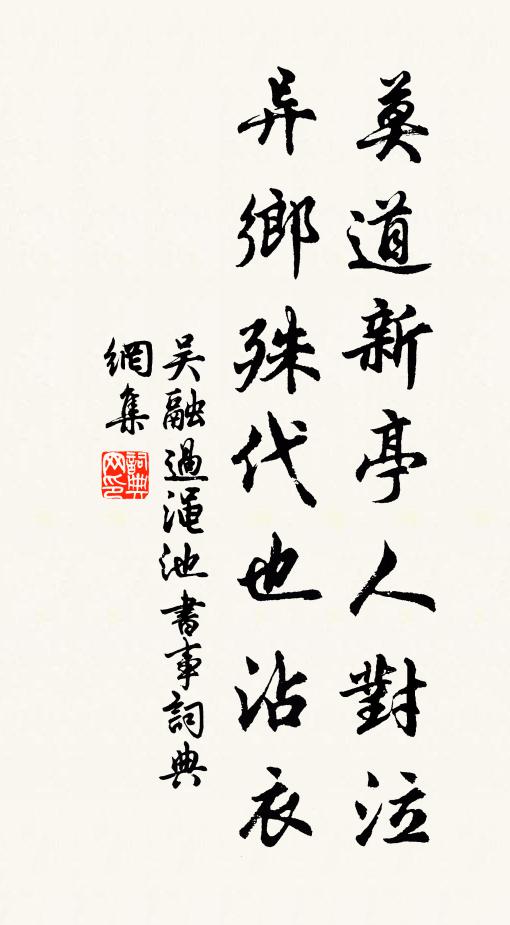 莫道新亭人對泣
异鄉殊代也沾衣
吴融過渑池書事詞典
網集
詞典网印